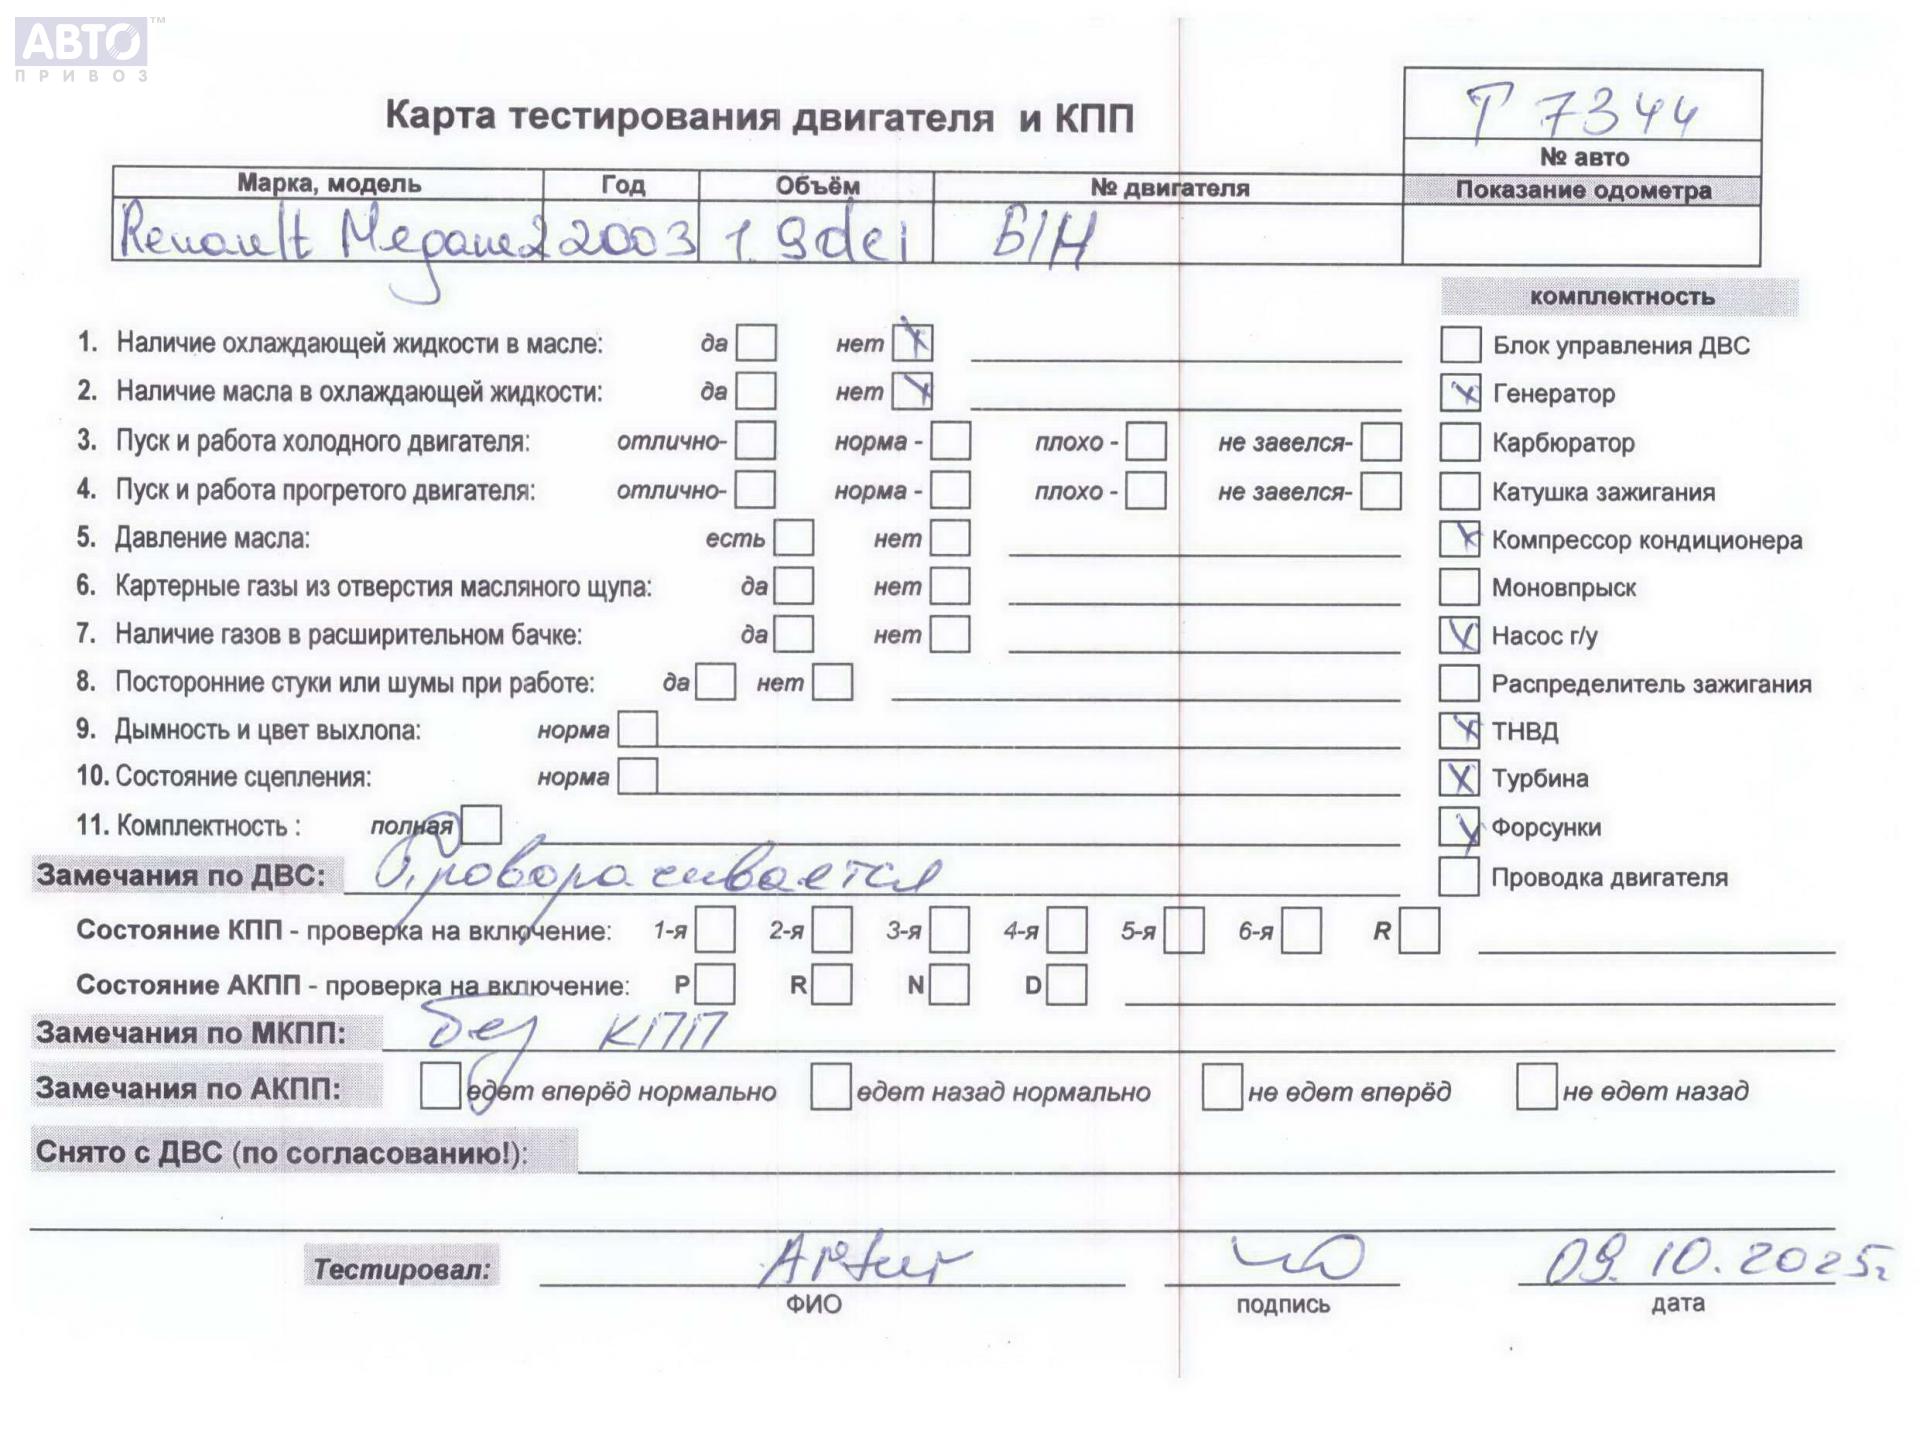 АВТО™
ПРИВОЗ
Т 7344
Карта тестирования двигателя и КПП
№ авто
Марка, модель Год Объём № двигателя Показание одометра
Renault Megane2 2003 1.9dci Б/Н
комплектность
1. Наличие охлаждающей жидкости в масле: да нет X
Блок управления ДВС
2. Наличие масла в охлаждающей жидкости: да нет X
X Генератор
3. Пуск и работа холодного двигателя: отлично- норма - плохо - не завелся-
Карбюратор
4. Пуск и работа прогретого двигателя: отлично- норма - плохо - не завелся-
Катушка зажигания
5. Давление масла: есть нет
X Компрессор кондиционера
6. Картерные газы из отверстия масляного щупа: да нет
Моновпрыск
7. Наличие газов в расширительном бачке: да нет
X Насос г/у
8. Посторонние стуки или шумы при работе: да нет
Распределитель зажигания
9. Дымность и цвет выхлопа: норма
X ТНВД
10. Состояние сцепления: норма
X Турбина
11. Комплектность : полная
X Форсунки
Замечания по ДВС: Проворачивается
Проводка двигателя
Состояние КПП - проверка на включение: 1-я 2-я 3-я 4-я 5-я 6-я R
Состояние АКПП - проверка на включение: P R N D
Замечания по МКПП: Без КПП
Замечания по АКПП: едет вперёд нормально едет назад нормально не едет вперёд не едет назад
Снято с ДВС (по согласованию!):
Тестировал: Artur 09.10.2025г
ФИО подпись дата